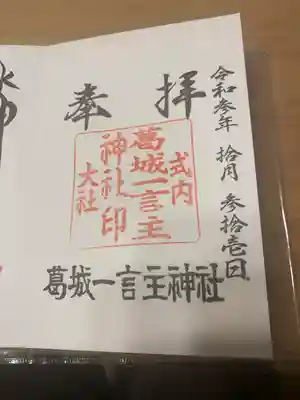 奉拝
令和参年 拾月 参拾壱日
式内
大社
葛城一言主
神社印
葛城一言主神社